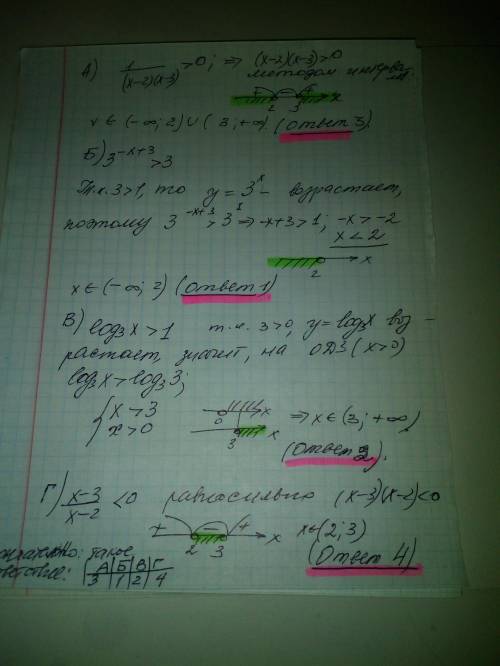 А) 1/((x-2)(x-3)) >0; ⇒ (x-2)(x-3)>0
методом интервалов
+ - + x
2 3
x ∈ (-∞; 2) ∪ (3; +∞) (Ответ 3)
Б) 3^(-x+3) >3
Т.к. 3>1, то y = 3^x - возрастает,
поэтому 3^(-x+3) > 3^1 ⇒ -x+3>1; -x>-2
x<2
2 x
x ∈ (-∞; 2) (Ответ 1)
В) log₃x>1 т.к. 3>0, y=log₃x воз-
растает, значит, на ОДЗ (x>0)
log₃x>log₃3;
{ x>3
x>0
0 x
3 x
⇒ x∈(3; +∞)
(Ответ 2).
Г) (x-3)/(x-2) <0 равносильно (x-3)(x-2)<0
+ - + x
2 3
x∈(2;3)
(Ответ 4)
такое
А Б В Г
3 1 2 4